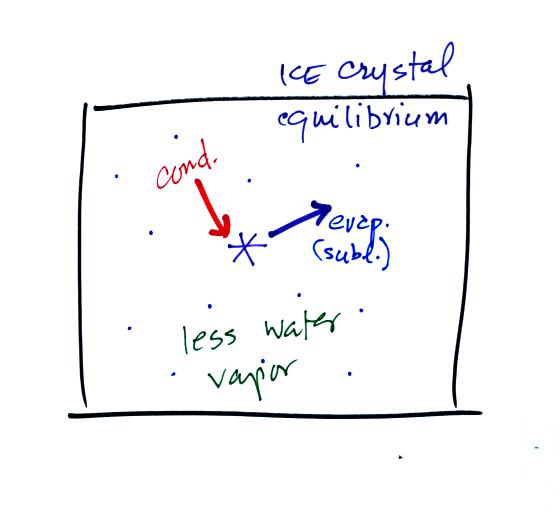 ICE crystal
equilibrium
cond.
evap.
(subl.)
less water
vapor